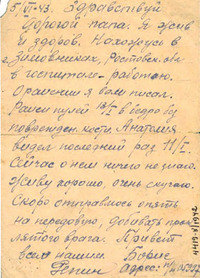 5/VI-43. Здравствуй
Дорогой папа. Я жив
и здоров. Нахожусь в
Зимовниках, Ростовск. обл.
в госпитале - работаю.
О ранении я вам писал.
Ранен пулей в бедро без
повреждения кости. Анатолия
видел последний раз 11/I.
Сейчас о нем ничего не знаю.
Живу хорошо, очень скучаю.
Скоро отправлюсь опять
на передовую, добивать про-
клятого врага. Привет
всем нашим. Борис
Адрес: